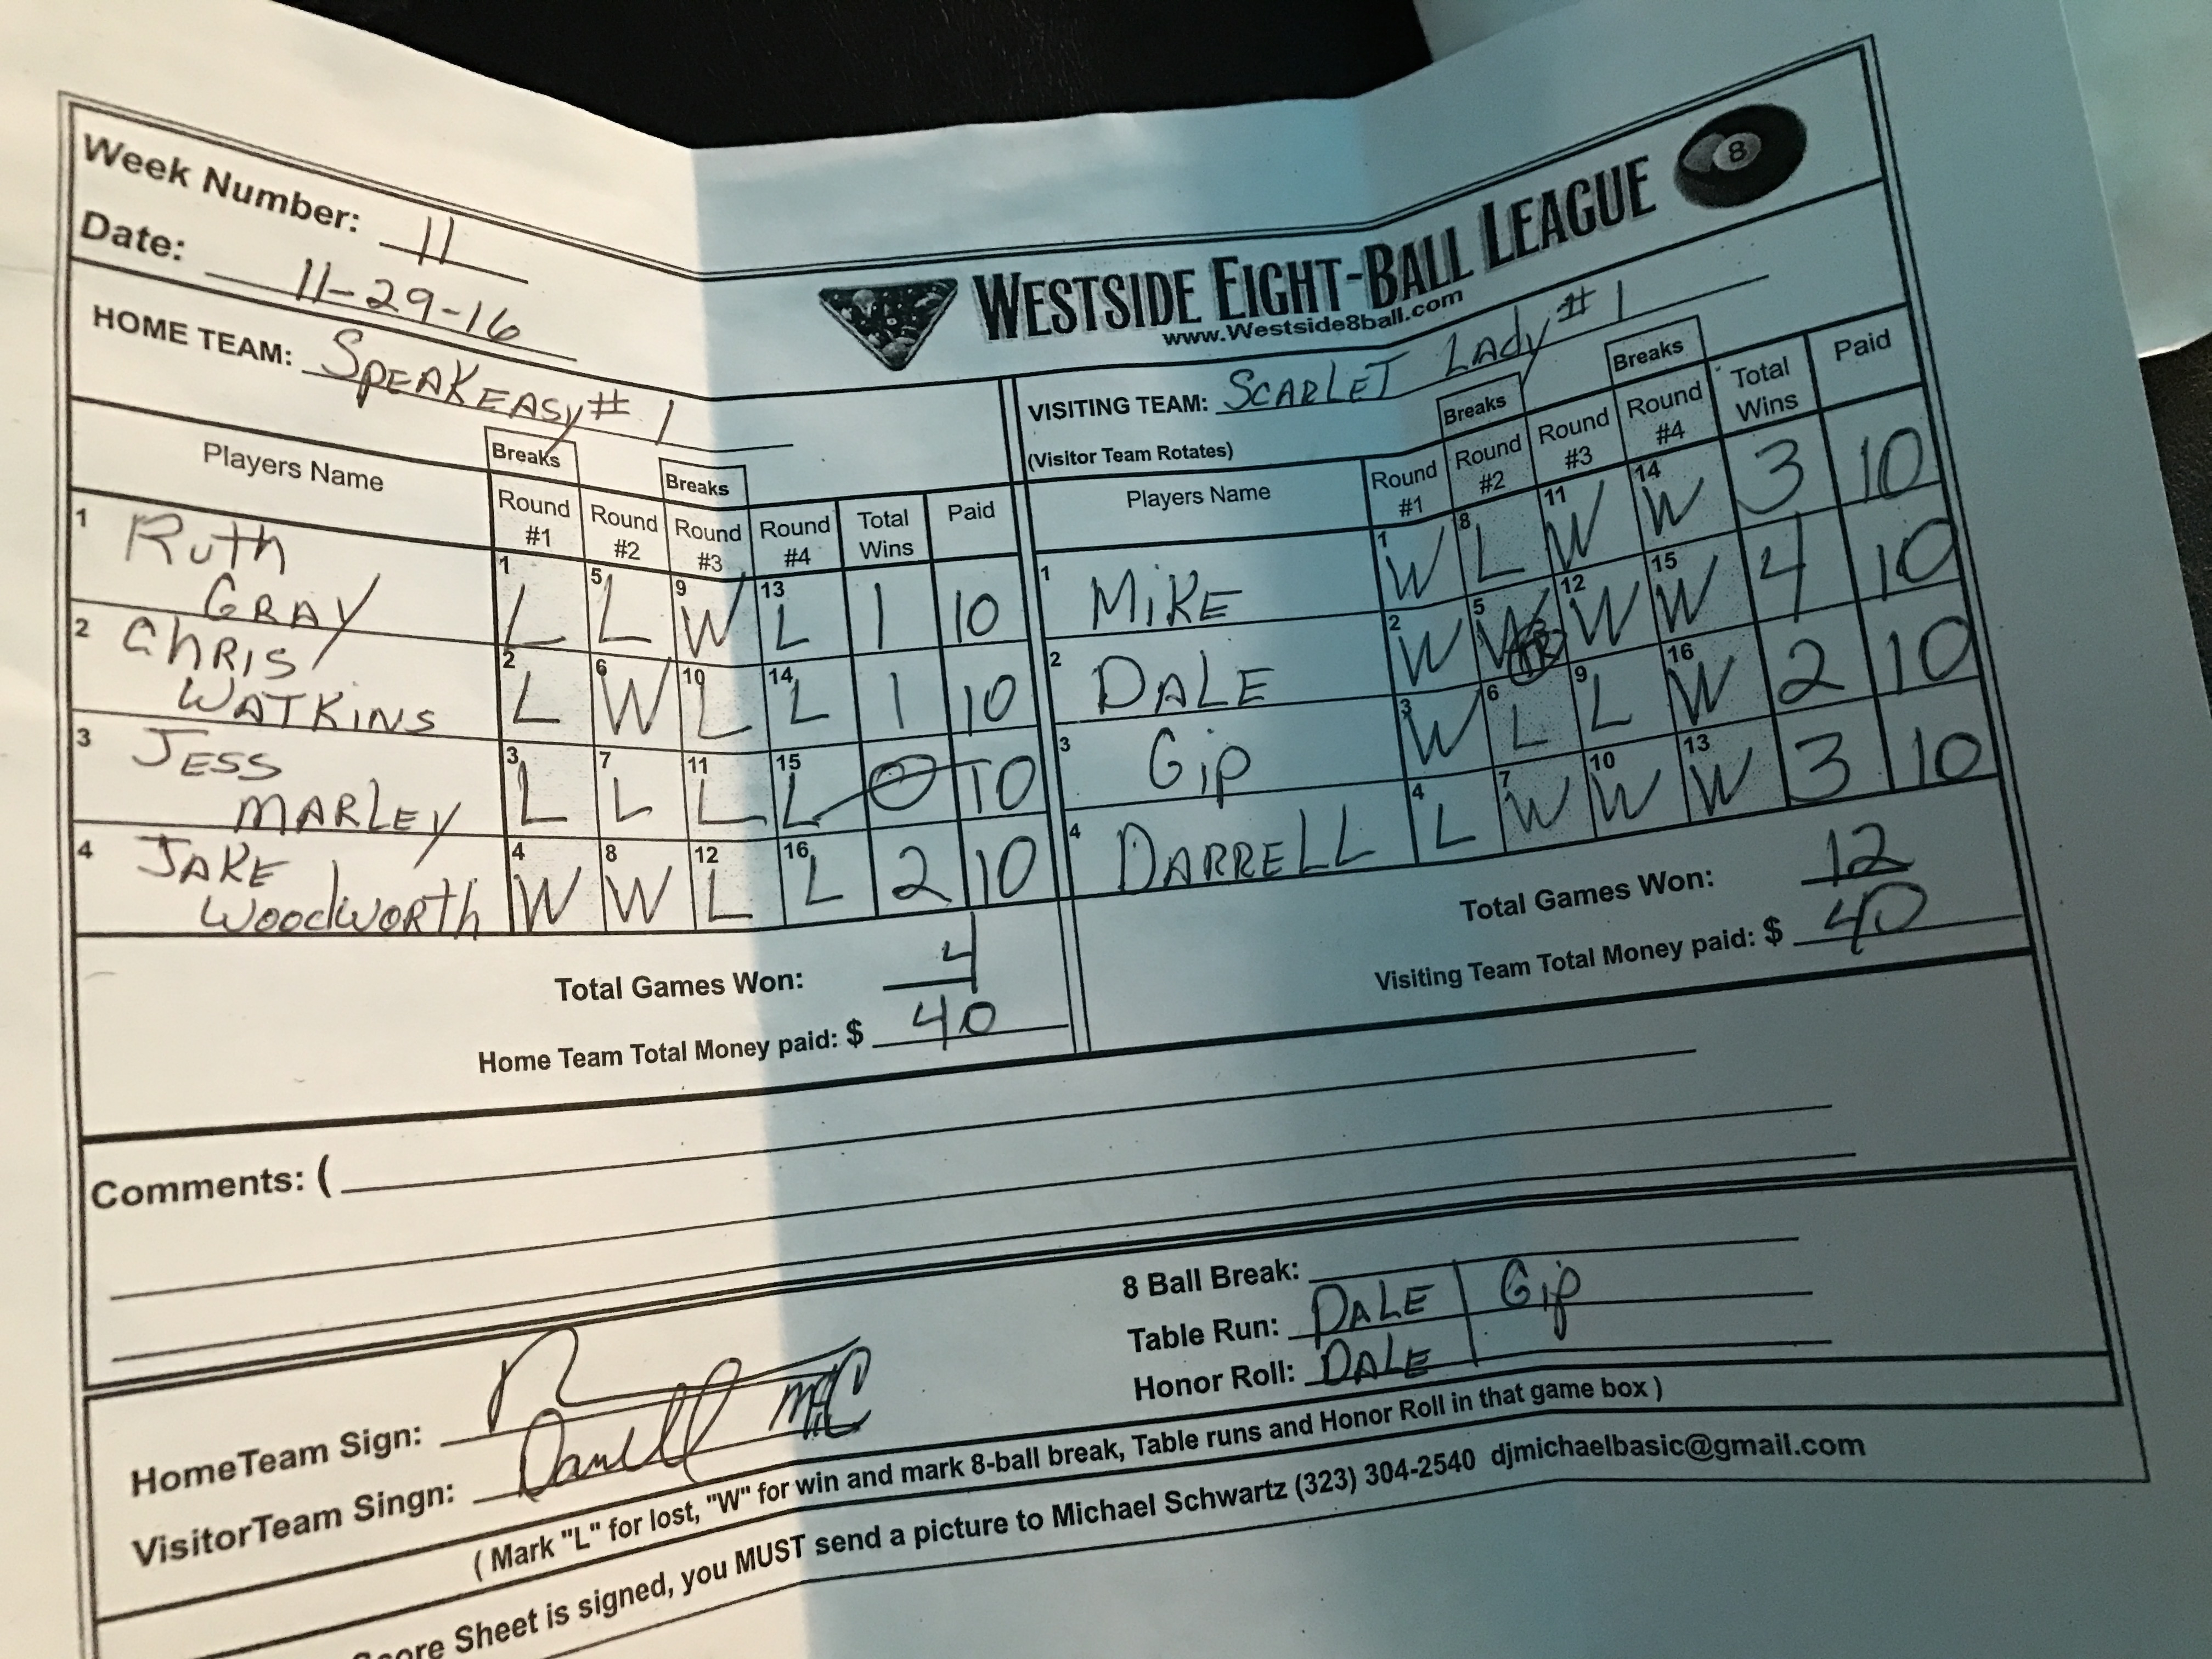 Week Number: 11
Date: 11-29-16
WESTSIDE EIGHT-BALL LEAGUE 8
www.Westside8ball.com
HOME TEAM: SPEAKEASY #1
VISITING TEAM: SCARLET LADY #1
(Visitor Team Rotates)
Breaks Breaks
Players Name Round #1 Round #2 Round #3 Round #4 Total Wins Paid
1 RUTH GRAY 1 L 5 L 9 W 13 L 1 10
2 CHRIS WATKINS 2 L 6 W 10 L 14 L 1 10
3 JESS MARLEY 3 L 7 L 11 L 15 L 0 10
4 JAKE WOODWORTH 4 W 8 W 12 L 16 L 2 10
Total Games Won: 4
Home Team Total Money paid: $ 40
Breaks Breaks
Players Name Round #1 Round #2 Round #3 Round #4 Total Wins Paid
1 MIKE 1 W 8 L 11 W 14 W 3 10
2 DALE 2 W 5 W 12 W 15 W 4 10
3 Gip 3 W 6 L 9 L 16 W 2 10
4 DARRELL 4 L 7 W 10 W 13 W 3 10
Total Games Won: 12
Visiting Team Total Money paid: $ 40
Comments: (
8 Ball Break:
Table Run: DALE | Gip
Honor Roll: DALE
HomeTeam Sign:
VisitorTeam Singn: Darrell
( Mark "L" for lost, "W" for win and mark 8-ball break, Table runs and Honor Roll in that game box )
Score Sheet is signed, you MUST send a picture to Michael Schwartz (323) 304-2540 djmichaelbasic@gmail.com